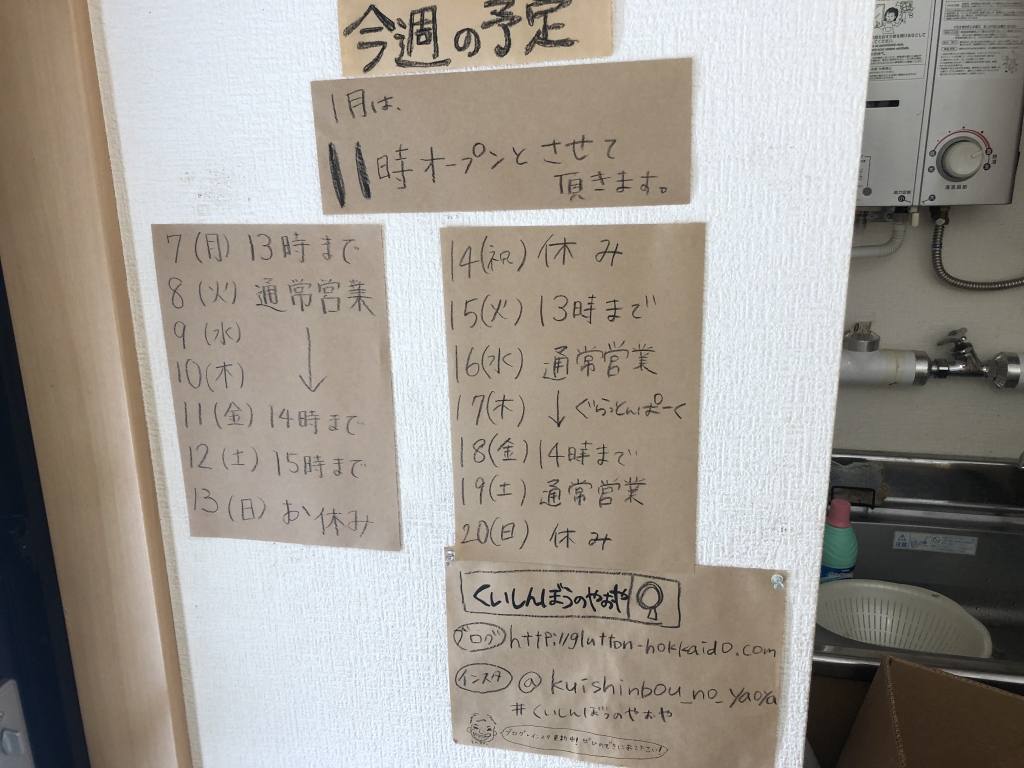 今週の予定
1月は、
11時オープンとさせて
頂きます。
7(月) 13時まで
8(火) 通常営業
9(水)
10(木) ↓
11(金) 14時まで
12(土) 15時まで
13(日) お休み
14(祝) 休み
15(火) 13時まで
16(水) 通常営業
17(木) ↓ ぐらっとんぱーく
18(金) 14時まで
19(土) 通常営業
20(日) 休み
くいしんぼうのやおや
ブログ http://glutton-hokkaido.com
インスタ @kuishinbou_no_yaoya
#くいしんぼうのやおや
ブログ・インスタ更新中!